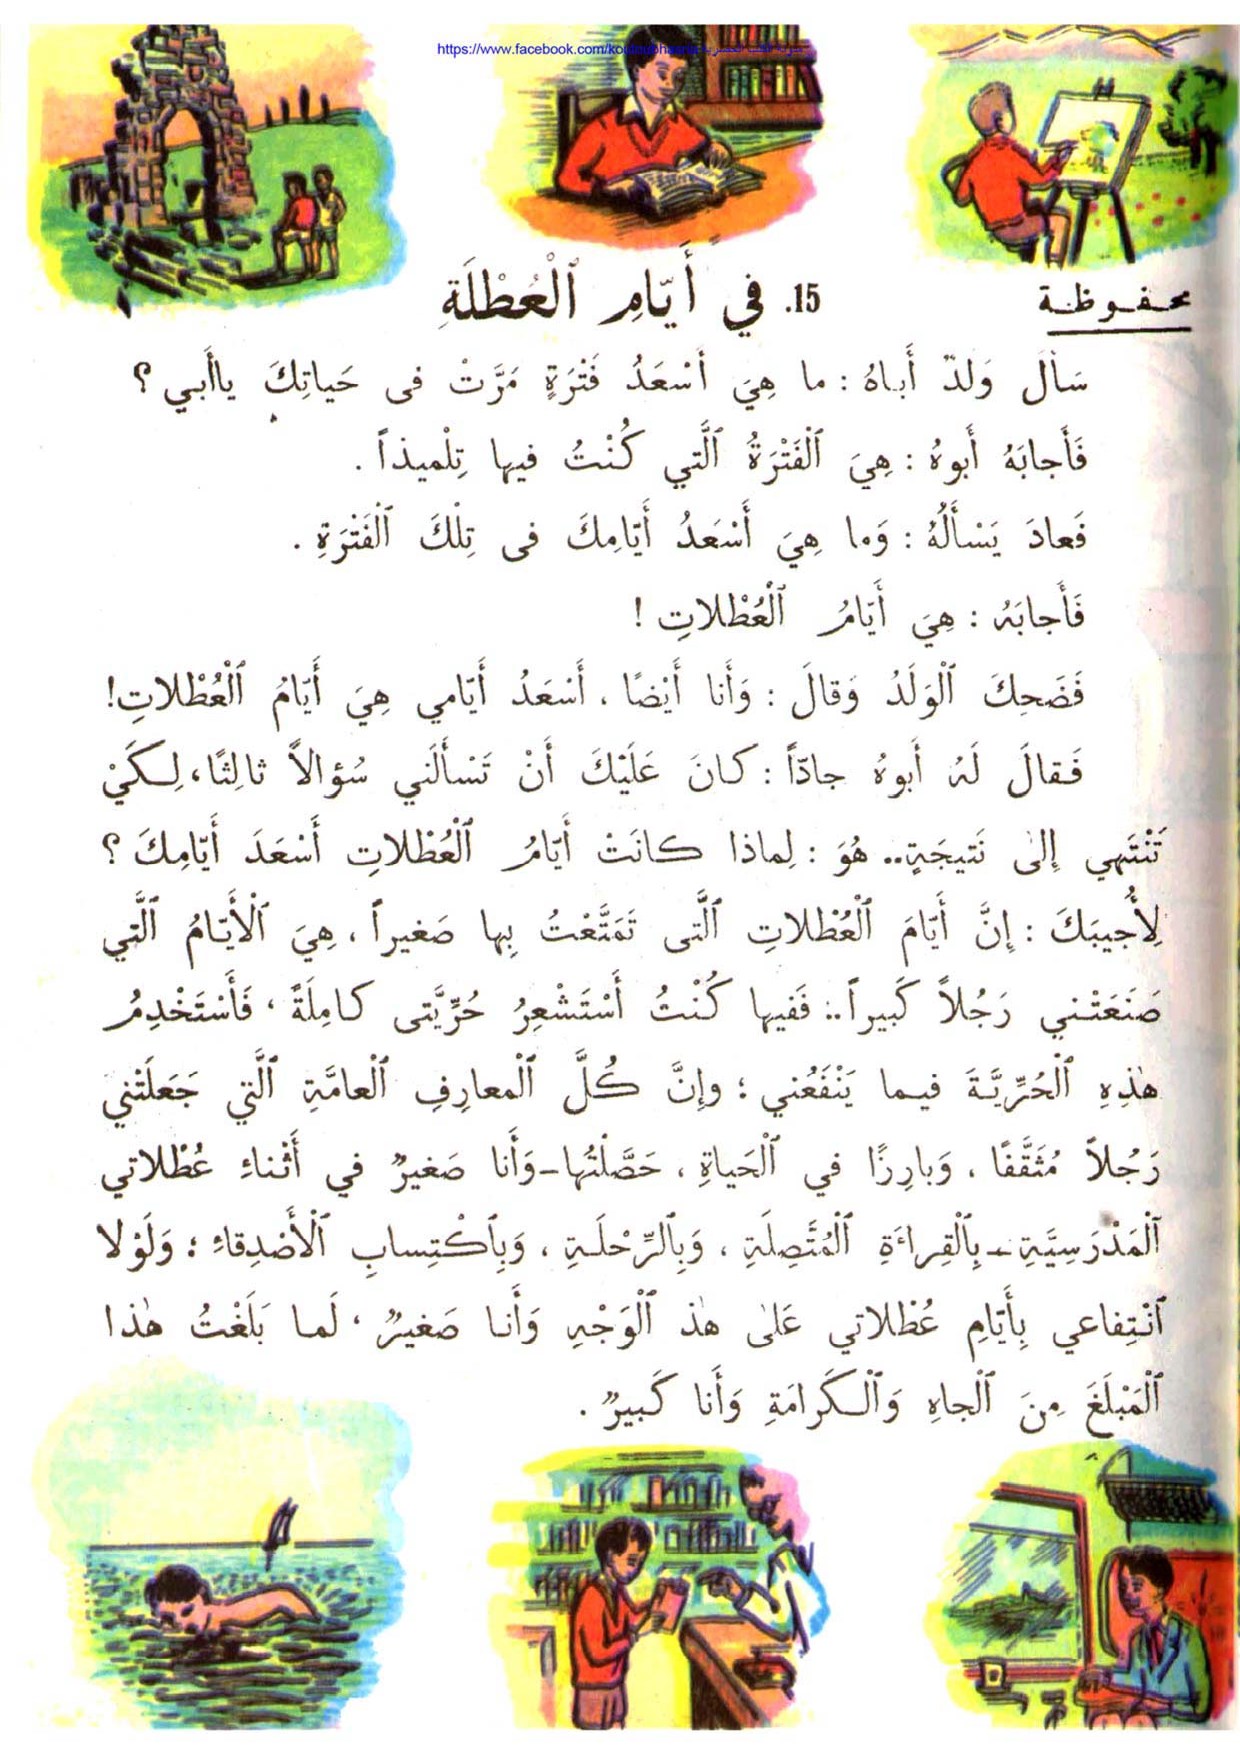 https://www.facebook.com/koutoubhasria
محفوظة
15. في أَيَّامِ ٱلْعُطْلَةِ
سَأَلَ وَلَدٌ أَباهُ : ما هِيَ أَسْعَدُ فَتْرَةٍ مَرَّتْ فى حَياتِكَ ياأَبي ؟
فَأَجابَهُ أَبوهُ : هِيَ ٱلْفَتْرَةُ ٱلَّتي كُنْتُ فيها تِلْميذاً .
فَعادَ يَسْأَلُهُ : وَما هِيَ أَسْعَدُ أَيّامِكَ فى تِلْكَ ٱلْفَتْرَةِ .
فَأَجابَهُ : هِيَ أَيّامُ ٱلْعُطْلاتِ !
فَضَحِكَ ٱلْوَلَدُ وَقالَ : وَأَنا أَيْضًا ، أَسْعَدُ أَيّامي هِيَ أَيّامُ ٱلْعُطْلاتِ!
فَقالَ لَهُ أَبوهُ جادّاً : كانَ عَلَيْكَ أَنْ تَسْأَلَني سُؤالاً ثالِثًا، لِكَيْ
تَنْتَهي إِلىٰ نَتيجَةٍ.. هُوَ : لِماذا كانَتْ أَيّامُ ٱلْعُطْلاتِ أَسْعَدَ أَيّامِكَ ؟
لِأُجيبَكَ : إِنَّ أَيّامَ ٱلْعُطْلاتِ ٱلَّتى تَمَتَّعْتُ بِها صَغيراً ، هِيَ ٱلْأَيّامُ ٱلَّتي
صَنَعَتْني رَجُلاً كَبيراً.. فَفيها كُنْتُ أَسْتَشْعِرُ حُرِّيَّتى كامِلَةً ، فَأَسْتَخْدِمُ
هٰذِهِ ٱلْحُرِّيَّةَ فيما يَنْفَعُني ؛ وإِنَّ كُلَّ ٱلْمعارِفِ ٱلْعامَّةِ ٱلَّتي جَعَلَتْني
رَجُلاً مُثَقَّفًا ، وَبارِزًا في ٱلْحَياةِ ، حَصَّلْتُها-وَأَنا صَغيرٌ في أَثْناءِ عُطْلاتي
ٱلْمَدْرَسِيَّةِ - بِٱلْقِراءَةِ ٱلْمُتَّصِلَةِ ، وَبِٱلرِّحْلَةِ ، وَبِٱكْتِسابِ ٱلْأَصْدِقاءِ ؛ وَلَوْلا
ٱنْتِفاعي بِأَيّامِ عُطْلاتي عَلىٰ هٰذ ٱلْوَجْهِ وَأَنا صَغيرٌ ، لَما بَلَغْتُ هٰذا
ٱلْمَبْلَغَ مِنَ ٱلْجاهِ وَٱلْكَرامَةِ وَأَنا كَبيرٌ .